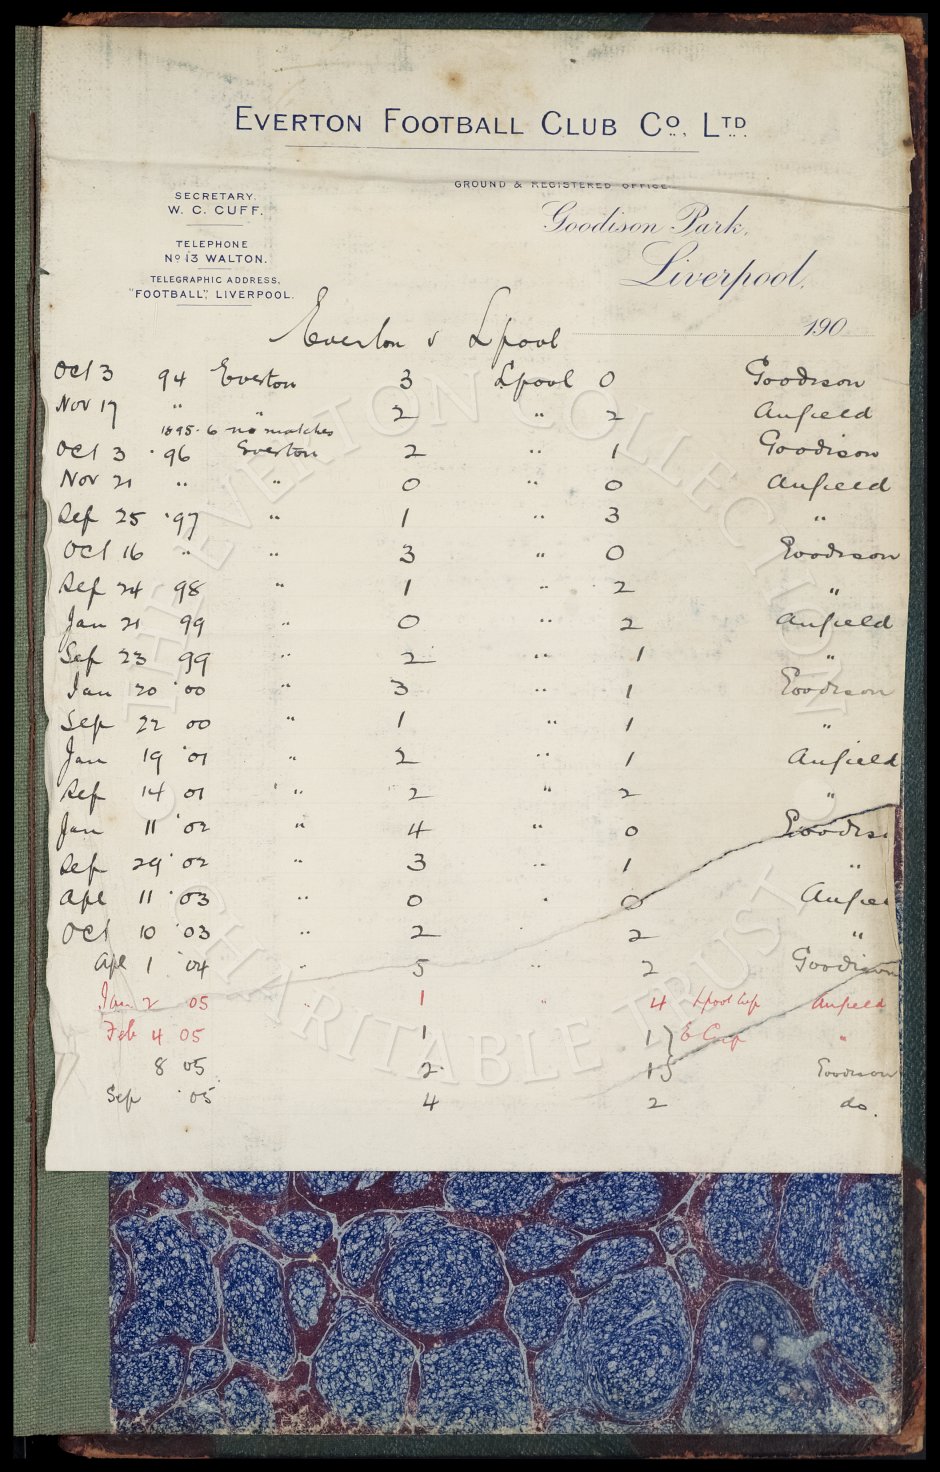 EVERTON FOOTBALL CLUB Co., LTD.
GROUND & REGISTERED OFFICE.
SECRETARY.
W. C. CUFF.
Goodison Park,
TELEPHONE
No 13 WALTON.
Liverpool,
TELEGRAPHIC ADDRESS,
"FOOTBALL", LIVERPOOL.
190
Everton v Lpool
Oct 3 94 Everton 3 Lpool 0 Goodison
Nov 17 " " 2 " 2 Anfield
1895-6 no matches
Oct 3 '96 Everton 2 " 1 Goodison
Nov 21 " " 0 " 0 Anfield
Sep 25 '97 " 1 " 3 "
Oct 16 " " 3 " 0 Goodison
Sep 24 98 " 1 " 2 "
Jan 21 99 " 0 " 2 Anfield
Sep 23 99 " 2 " 1 "
Jan 20 '00 " 3 " 1 Goodison
Sep 22 00 " 1 " 1 "
Jan 19 '01 " 2 " 1 Anfield
Sep 14 01 " 2 " 2 "
Jan 11 '02 " 4 " 0 Goodiso
Sep 29 '02 " 3 " 1 "
Apl 11 '03 " 0 " 0 Anfiel
Oct 10 '03 " 2 " 2 "
Apl 1 '04 " 5 " 2 Goodison
Jan 2 05 " 1 " 4 Lpool Cup Anfield
Feb 4 05 1 1 } E Cup "
8 05 2 1 } Goodison
Sep '05 4 2 do.
THE EVERTON COLLECTION
CHARITABLE TRUST